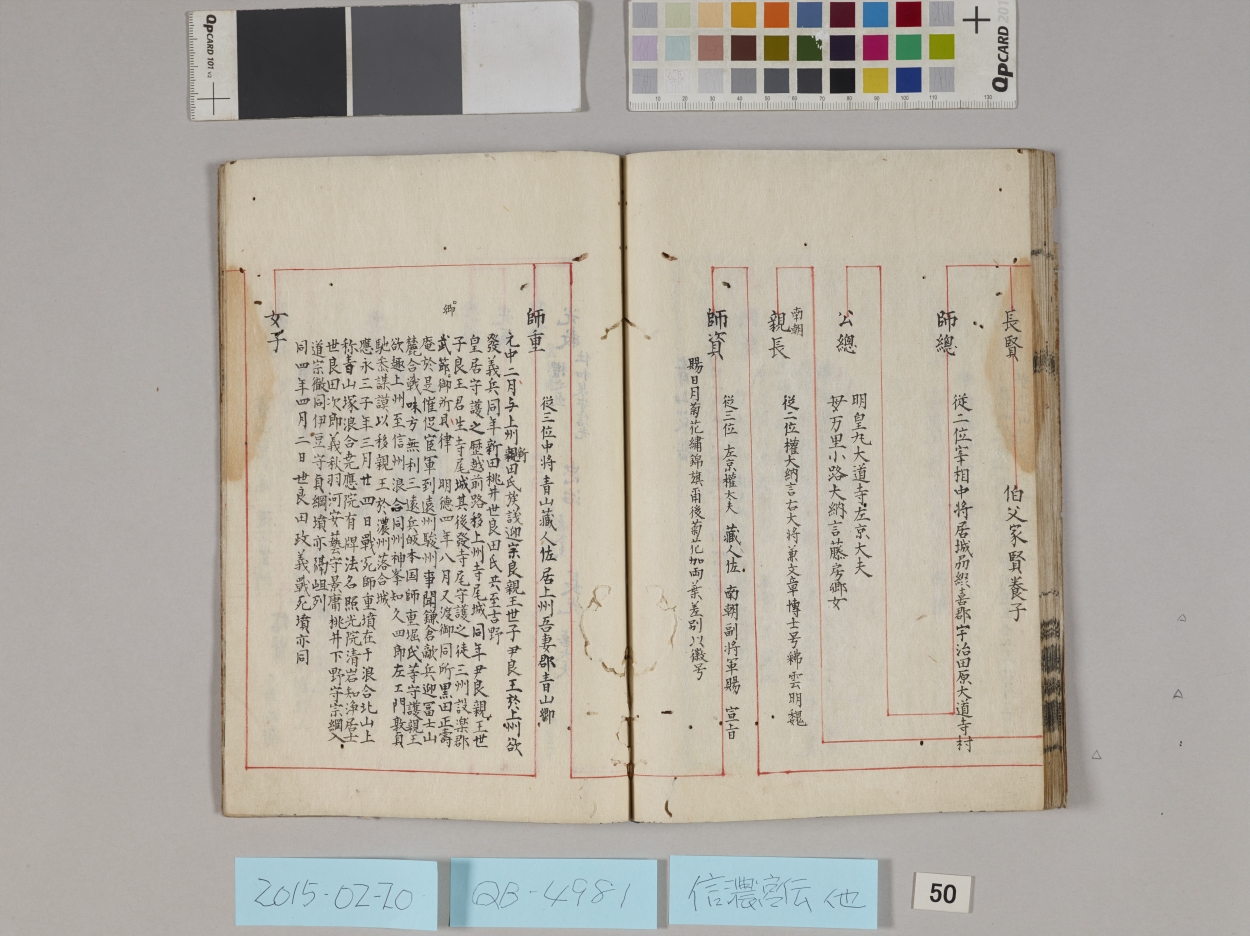 QPCARD 101 v3
QPCARD 201
長賢
伯父家賢養子
師總
従二位宰相中将居城城綴喜郡宇治田原大道寺村
公總
明皇九大道寺左京大夫
母万里小路大納言藤房卿女
南朝
親長
従二位權大納言右大将兼文章博士号稀雲明魏
師資
従三位 左京權大夫 藏人佐 南朝副将軍賜 宣旨
賜日月菊花繡錦旗爾後菊花加両葉差別以徽号
師重
従三位中将青山藏人佐居上州吾妻郡青山郷
元中二月与上州新田氏族議迎宗良親王世子尹良王於上州欲
發義兵同年新田桃井世良田氏共至吉野
皇居守護之歴越前路移上州寺尾城同年尹良親王世
子良王君生寺尾城其後發寺尾守護之徒三州設楽郡
武節御所具律 明徳四年八月又渡御同所黒田正壽
庵於是催促宦軍到遠州駿州事聞鎌倉敵兵迎冨士山
麓合戦味方無利三遠兵皈本国師重堀氏等守護親王
欲趣上州至信州浪合同州神峯知久四郎左エ門敦貞
馳参謀議以移親王於濃州落合城
應永三子年三月廿四日戰死師重墳在于浪合北山上
称青山塚浪合尭應院有牌法名照光院清岩知浄居士
世良田次郎義秋羽河安藝守景庸桃井下野守宗綱入
道宗徹同伊豆守貞綱墳亦隔岨列
同四年四月二日世良田政義戰死墳亦同
郷
女子
2015-02-20
QB-4981
信濃宮伝 他
50